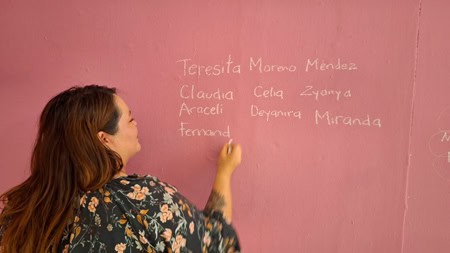 Teresita Moreno Mendez
Claudia Celia Zyanya
Araceli Deyanira Miranda
Fernand